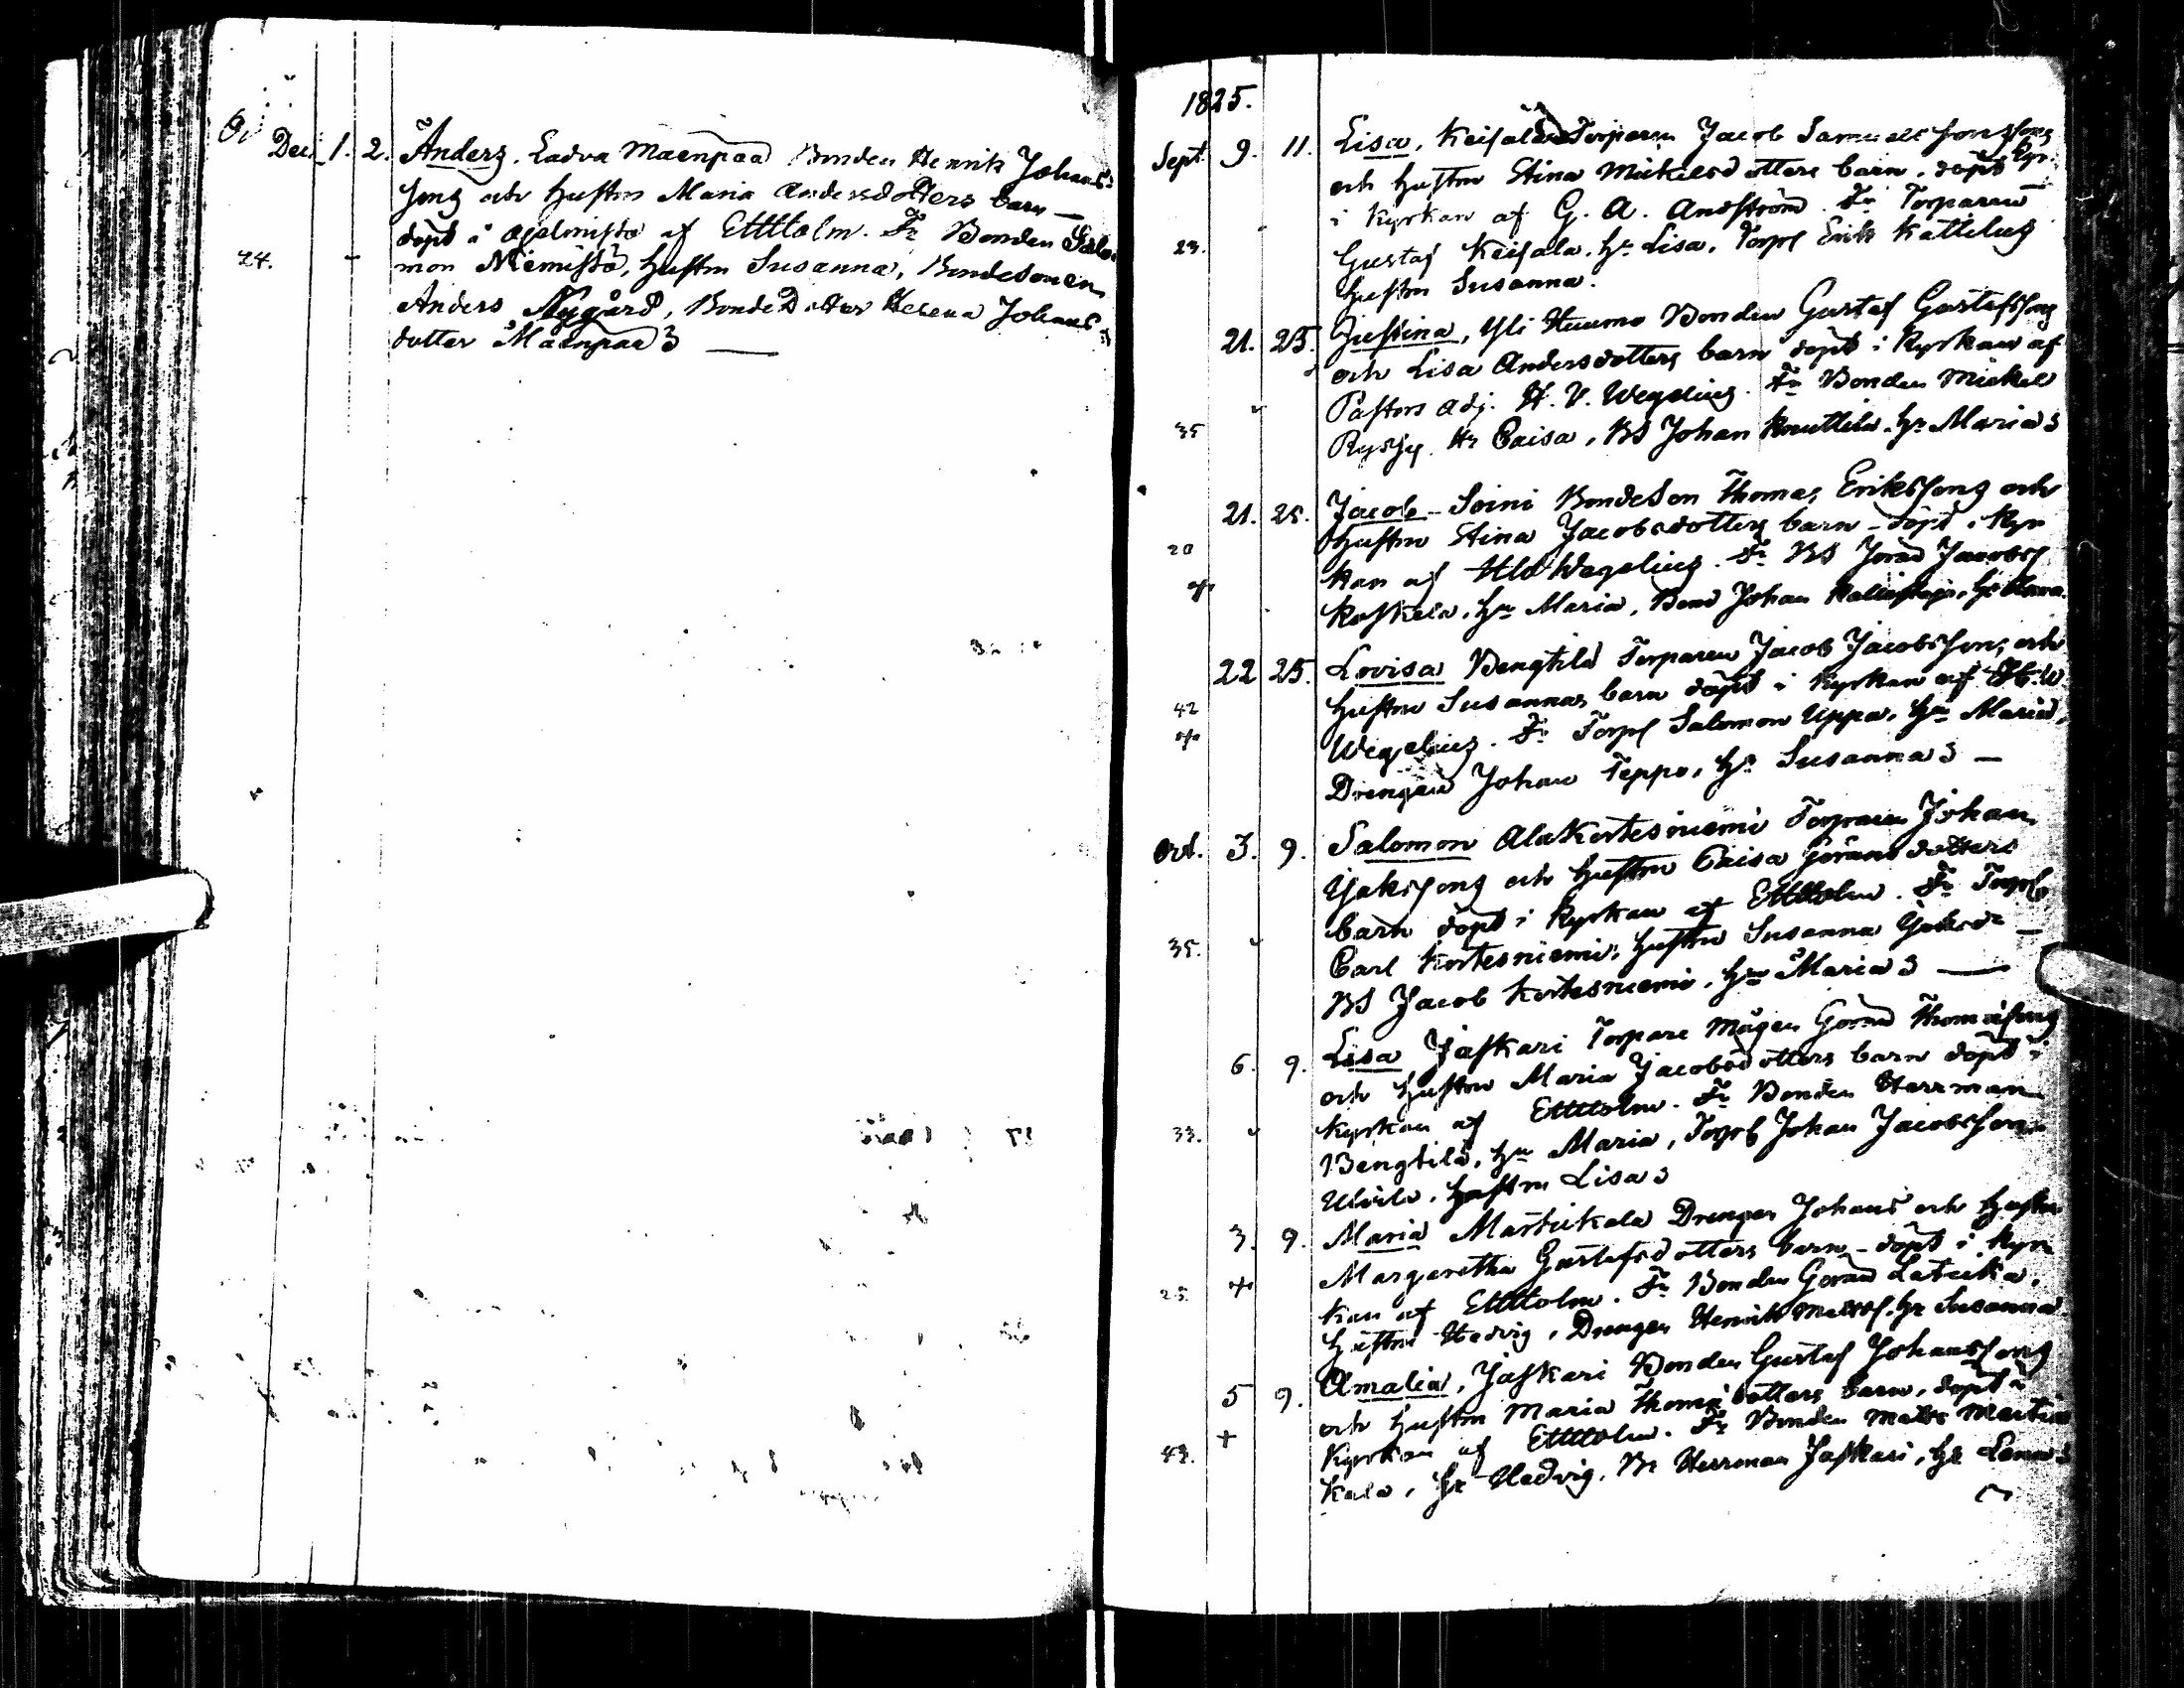 Dec. 1. 2. Anders. Ladva Mäenpää Bonden Henrik Johans
sons och Hustrus Maria Andersdotters barn —
döpt i af Ettholm. Fr Bonden Salo
24. mon Niemistö, Hustrun Susanna, Bondesonen
Anders Nygård, BondeDotter Helena Johans
dotter Mäenpää 3 —
1825.
Sept. 9. 11. Lisa, Keisala Torparen Jacob Samuelssons
och Hustrun Stina Mickelsdotters barn, döpt
i Kyrkan af G. A. Andström. Fr Torparen
23. Gustaf Keisala. Hr Lisa, Torps Erik Kattelus
Hustrun Susanna.
21. 25. Justina, Yli Huumo Bonden Gustaf Gustafssons
och Lisa Andersdotters barn döpt i Kyrkan af
Pastors Adj. H. V. Wegelius. Fr Bonden Mickel
35 Hr Caisa, BS Johan Knuttila. Hr Maria 3
21. 25. Jacob - Soini BondeSon Thomas Erikssons och
20 Hustrun Stina Jacobsdotters barn - döpt i Kyr
kan af Wegelius. Fr BS Jacobss
Koskela, Hu Maria, Bond Johan
22 25. Lovisa Bengtilä Torparen Jacob Jacobssons och
42 Hustrun Susannas barn döpt i Kyrkan af H. W.
Wegelius. Fr Torps Salomon Uppa, Hu Maria,
Drengen Johan Teppo, Hr Susanna 3 —
Oct. 3. 9. Salomon Alakortesniemi Torparen Johan
Isakssons och Hustrun Caisa Göransdotters
barn döpt i Kyrkan af Ettholm. Fr Torps
35. Carl Kortesniemi, Hustrun Susanna —
BS Jacob Kortesniemi, Hu Maria 3 —
6. 9. Lisa Jaskari Torpare Mågen Göran Thomassons
och Hustrun Maria Jacobsdotters barn döpt i
33. Kyrkan af Ettholm. Fr Bonden Herrman
Bengtilä, Hu Maria, Torps Johan Jacobsson
Ulvila. Hustrun Lisa 3
3. 9. Maria Martikkala Drengen Johans och Hustru
Margaretha Gustafsdotters barn - döpt i Kyr
25. kan af Ettholm. Fr Bonden Göran Latukka,
Hustrun Hedvig, Drengen Henrik Matss. Hr Susanna
5 9. Amalia, Jaskari Bonden Gustaf Johanssons
och Hustrun Maria Thomædotters barn, döpt i
43. + Kyrkan af Ettholm. Fr Bonden Matts Martik
kala, Hr Hedvig. Br Herrman Jaskari, Hr Lena 3